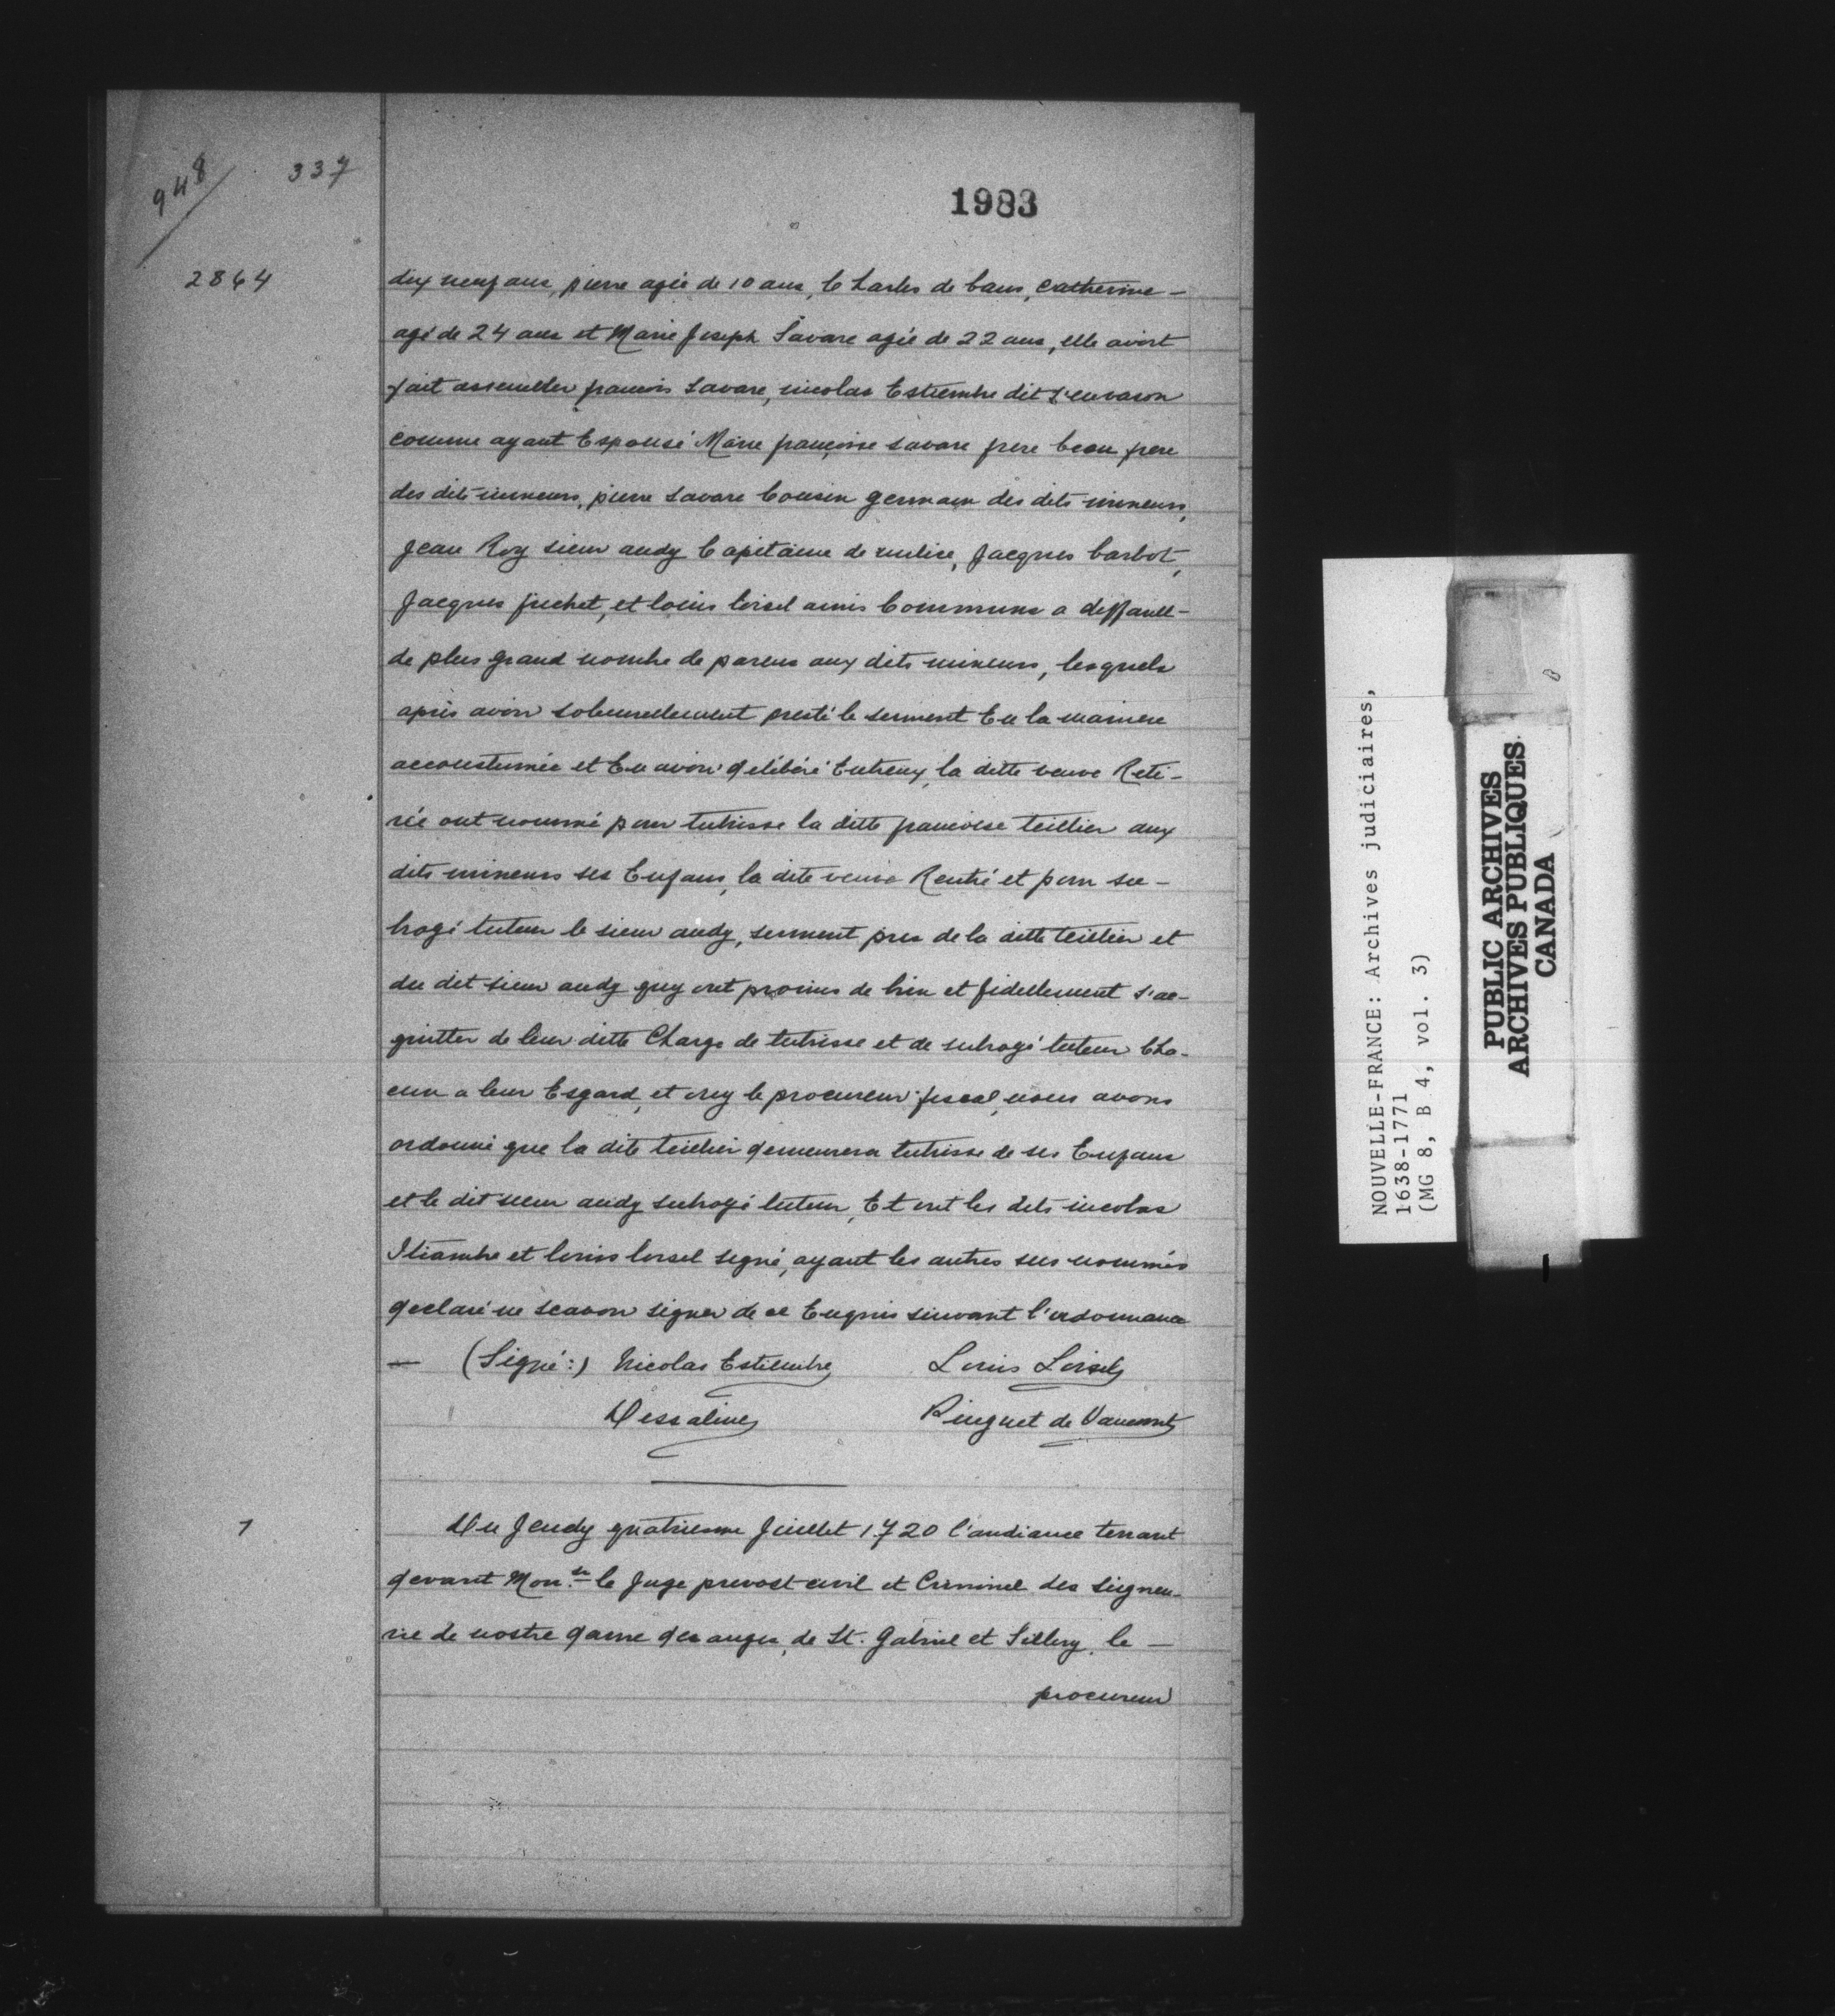 948
337
1983
2864
dix neuf ans, pierre agée de 10 ans, le harles de bans, Catherine -
agé de 24 ans et Marie Joseph Savare agée de 22 ans, elle avoit
fait assembler francois Savare, nicolas Estiembre dit
comme ayant Espousé Marie francoise savare frere beau frere
des dits mineurs, pierre Savare Cousin germain des dits mineurs,
Jean Roy sieur audy Capitaine de milice, Jacques barbot,
Jacques fuchet, et louis loisel amis Communs a deffault -
de plus grand nombre de parens aux dits mineurs, lesquels
après avoir solemnellement presté le serment En la maniere
accoustumée et En avoir deliberé Entreux, la ditte veuve Reti-
rée ont nommé pour tutrisse la ditte francoise teillier aux
dits mineurs ses Enfans, la dite veuve Rentré et pour su-
brogé tuteur le sieur audy, serment pres de la ditte teillier et
du dit sieur audy quy ont promis de bien et fidellement s'ac-
quitter de leur ditte Charge de tutrisse et de subrogé tuteur Cha-
cun a leur Esgard, et ouy le procureur fiscal, nous avons
ordonné que la dite teillier demeurera tutrisse de ses Enfans
et le dit sieur audy subrogé tuteur, Et ont les dits nicolas
Itiambre et louis loisel signé, ayant les autres sus nommés
declaré ne scavoir signer de ce Enquis suivant l'ordonnance
— (Signé:) Nicolas Estiembre Louis Loisel
Dessaline Pinguet de Vaucourt
1
Du Jeudy quatriesme Juillet 1720 l'audiance tenant
devant Mon.sr le Juge prevost civil et Criminel des Seigneu-
rie de nostre dame des anges, de St. Gabriel et Sillery, le —
procureur
NOUVELLE-FRANCE: Archives judiciaires,
1638-1771
(MG 8, B 4, vol. 3)
PUBLIC ARCHIVES
ARCHIVES PUBLIQUES
CANADA